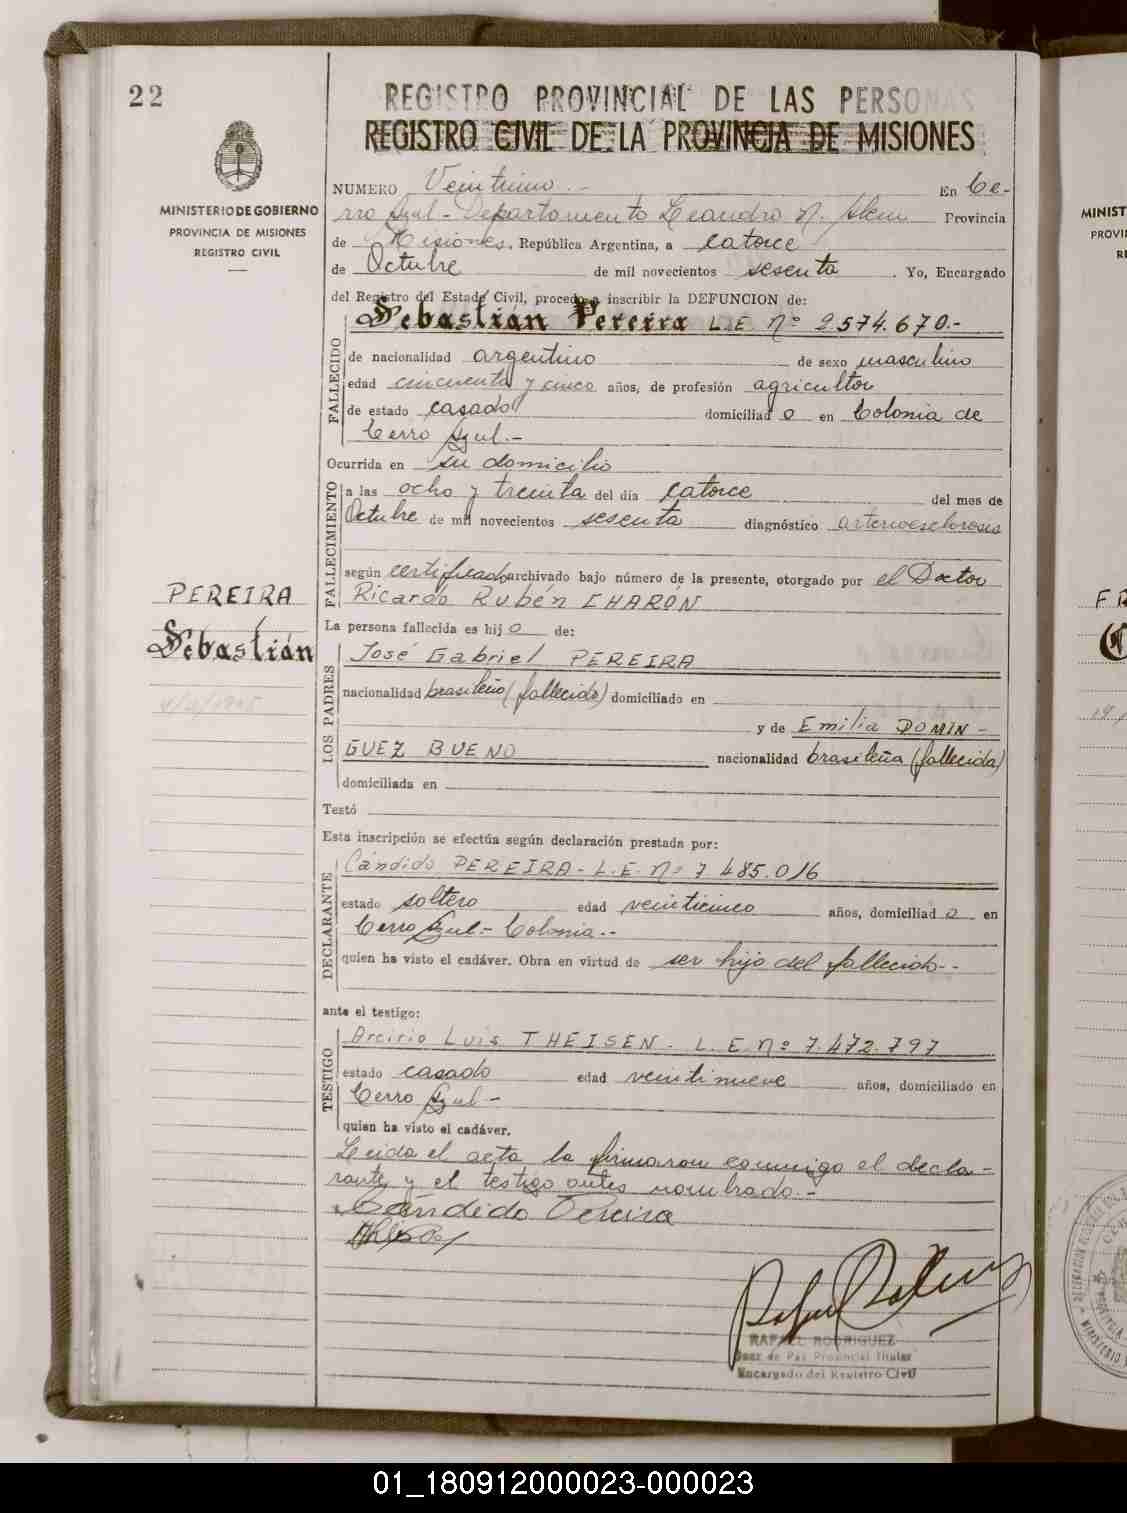 22
REGISTRO PROVINCIAL DE LAS PERSONAS
REGISTRO CIVIL DE LA PROVINCIA DE MISIONES
MINISTERIO DE GOBIERNO
PROVINCIA DE MISIONES
REGISTRO CIVIL
NUMERO Veintiuno.- En Ce-
rro Azul - Departamento Leandro N. Alem Provincia
de Misiones, República Argentina, a catorce
de Octubre de mil novecientos sesenta . Yo, Encargado
del Registro del Estado Civil, procedo a inscribir la DEFUNCION de:
Sebastián Pereira L.E Nº 2574.670.-
FALLECIDO
de nacionalidad argentino de sexo masculino
edad cincuenta y cinco años, de profesión agricultor
de estado casado domiciliad o en Colonia de
Cerro Azul.-
Ocurrida en su domicilio
FALLECIMIENTO
a las ocho y treinta del día catorce del mes de
Octubre de mil novecientos sesenta diagnóstico arterioesclerosis
según certificado archivado bajo número de la presente, otorgado por el Doctor
Ricardo Rubén CHARÓN
PEREIRA
Sebastián
La persona fallecida es hij o de:
LOS PADRES
José Gabriel PEREIRA
nacionalidad brasileño (fallecido) domiciliado en
y de Emilia DOMIN-
GUEZ BUENO nacionalidad brasileña (fallecida)
domiciliada en
Testó
Esta inscripción se efectúa según declaración prestada por:
DECLARANTE
Cándido PEREIRA - L.E. Nº 7 485.016
estado soltero edad veinticinco años, domiciliad o en
Cerro Azul.- Colonia.-
quien ha visto el cadáver. Obra en virtud de ser hijo del fallecido.-
ante el testigo:
TESTIGO
Arcirio Luis THEISEN - L.E. Nº 7.472.797
estado casado edad veintinueve años, domiciliado en
Cerro Azul -
quien ha visto el cadáver.
Leida el acta la firmaron conmigo el decla-
rante y el testigo antes nombrado.-
Cándido Pereira
RAFAEL RODRIGUEZ
Juez de Paz Provincial Titular
Encargado del Registro Civil
MINIST
PROVI
RE
FR
01_180912000023-000023